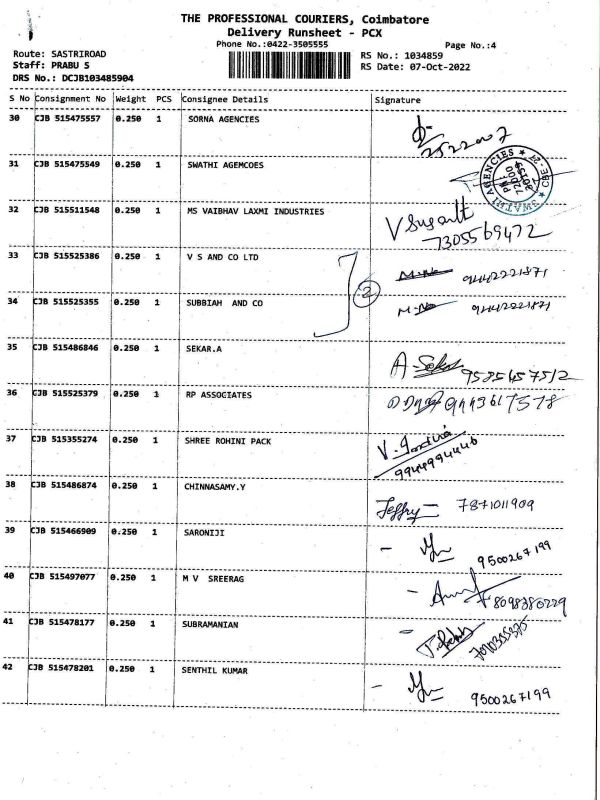 THE PROFESSIONAL COURIERS, Coimbatore
Delivery Runsheet - PCX
Phone No.:0422-3505555
Page No.:4
Route: SASTRIROAD
RS No.: 1034859
Staff: PRABU S
RS Date: 07-Oct-2022
DRS No.: DCJB103485904
S No Consignment No Weight PCS Consignee Details Signature
30 CJB 515475557 0.250 1 SORNA AGENCIES
2522007
31 CJB 515475549 0.250 1 SWATHI AGEMCOES
32 CJB 515511548 0.250 1 MS VAIBHAV LAXMI INDUSTRIES
7305569472
33 CJB 515525386 0.250 1 V S AND CO LTD 9442221871
2
34 CJB 515525355 0.250 1 SUBBIAH AND CO 9442221871
35 CJB 515486846 0.250 1 SEKAR.A A-Sekar 9585457512
36 CJB 515525379 0.250 1 RP ASSOCIATES 9443617578
37 CJB 515355274 0.250 1 SHREE ROHINI PACK
9944994446
38 CJB 515486874 0.250 1 CHINNASAMY.Y Jeffry 7871011909
39 CJB 515466909 0.250 1 SARONIJI
9500267199
40 CJB 515497077 0.250 1 M V SREERAG
8098380229
41 CJB 515478177 0.250 1 SUBRAMANIAN
42 CJB 515478201 0.250 1 SENTHIL KUMAR
9500267199